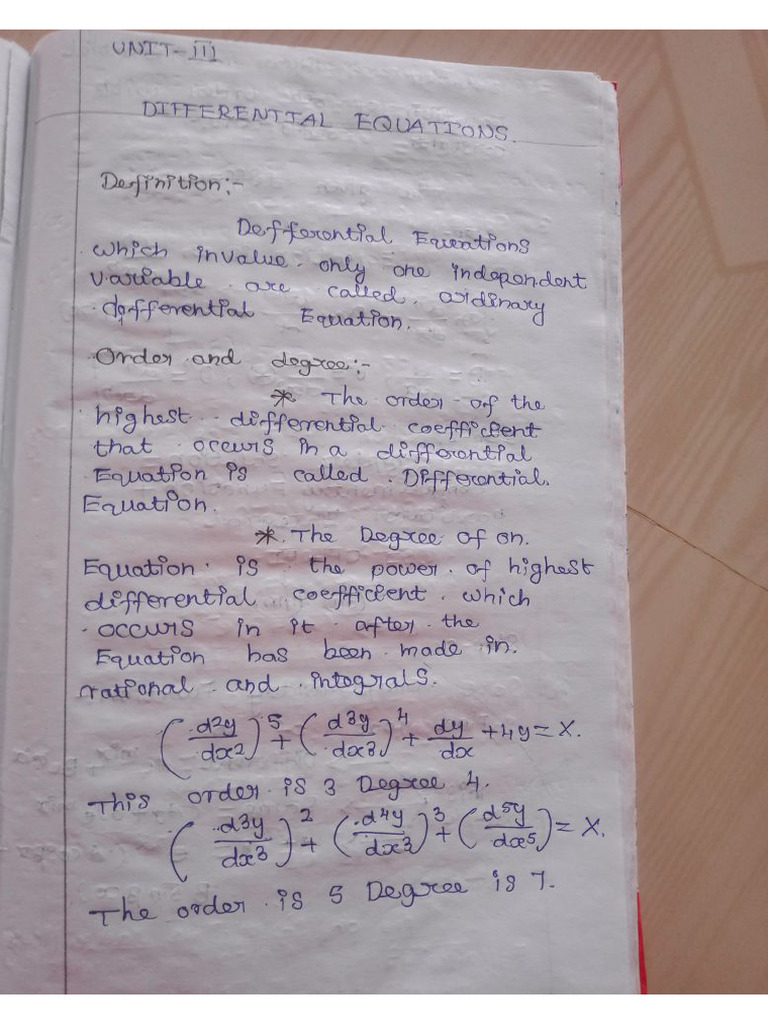 UNIT-III
DIFFERENTIAL EQUATIONS.
Definition:-
Defferential Equations
which invalue only one independent
variable are called. ordinary
defferential Equation.
Order and degree:-
* The order of the
highest differential coefficient
that occurs in a differential
Equation is called Differential.
Equation.
* The Degree of on.
Equation is the power of highest
differential coefficient which
occurs in it after the
Equation has been made in.
rational and integrals.
(d2y/dx2)^5 + (d3y/dx3)^4 + dy/dx + 4y = X.
This order is 3 Degree 4.
(d3y/dx3)^2 + (d4y/dx3)^3 + (d5y/dx5) = X.
The order is 5 Degree is 7.